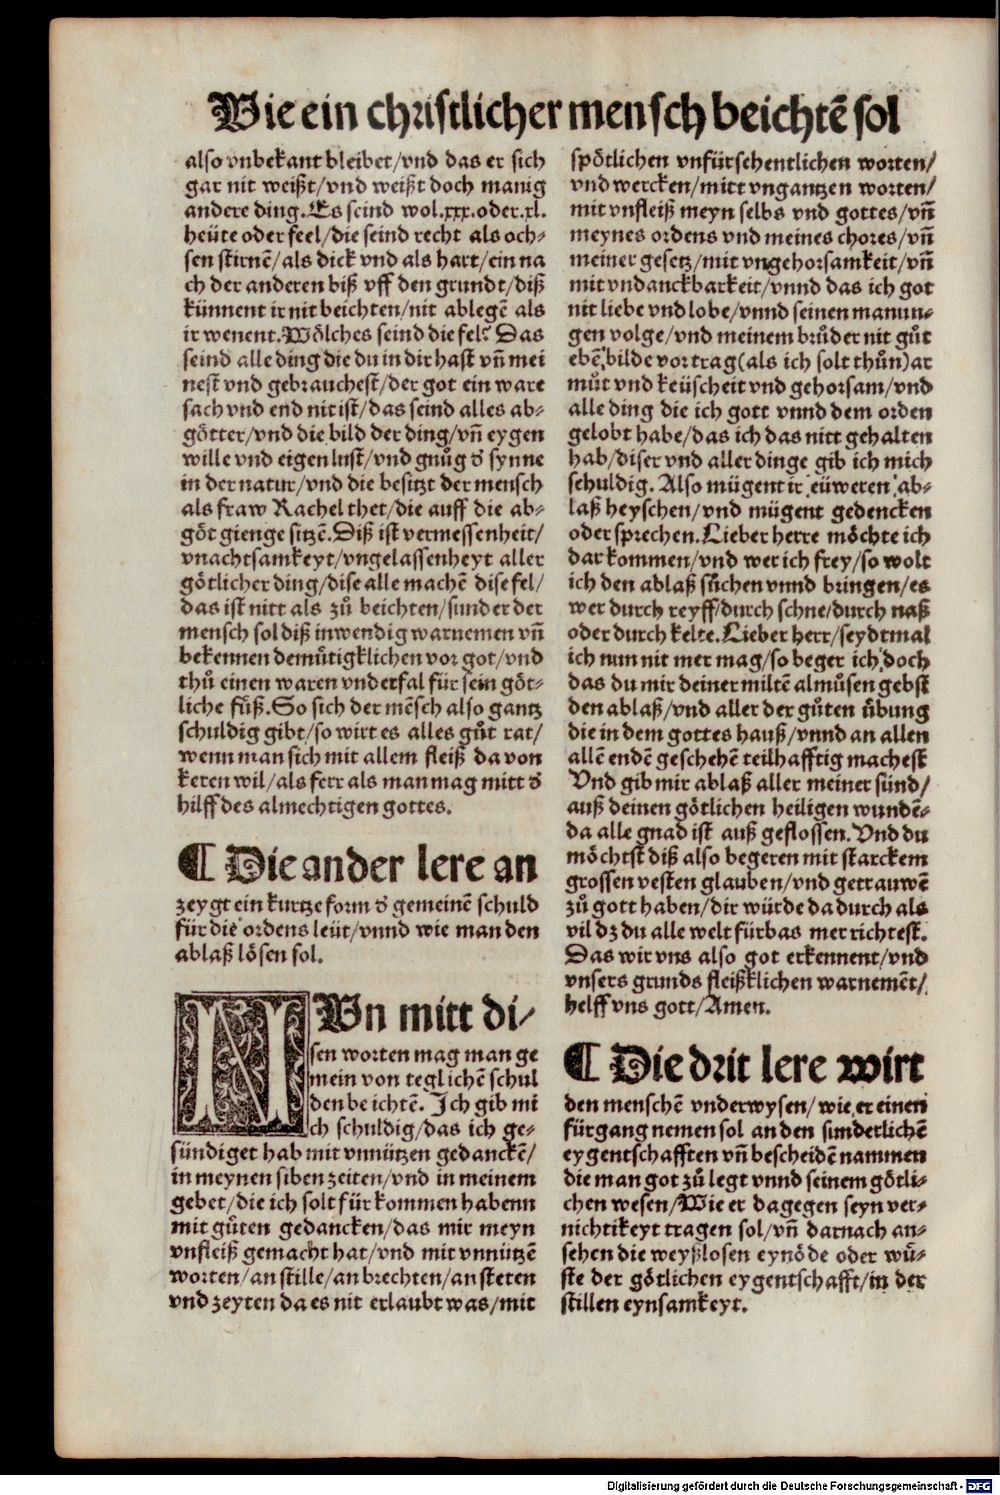 Wie ein christlicher mensch beichtē sol
also vnbekant bleibet/vnd das er sich
gar nit weißt/vnd weißt doch manig
andere ding. Es seind wol.xxx.oder.xl.
heüte oder feel/die seind recht als och-
sen stirnē/als dick vnd als hart/ein na
ch der anderen biß vff den grundt/diß
künnent ir nit beichten/nit ablegē als
ir wenent. Wölches seind die fel? Das
seind alle ding die du in dir hast vñ mei
nest vnd gebrauchest/der got ein ware
sach vnd end nit ist/das seind alles ab-
götter/vnd die bild der ding/vñ eygen
wille vnd eigen lust/vnd gnůg d̕ synne
in der natur/vnd die besitzt der mensch
als fraw Rachel thet/die auff die ab-
göt gienge sitzē. Diß ist vermessenheit/
vnachtsamkeyt/vngelassenheyt aller
götlicher ding/dise alle machē dise fel/
das ist nitt als zů beichten/sunder der
mensch sol diß inwendig warnemen vñ
bekennen demütigklichen vor got/vnd
thů einen waren vnderfal für sein göt-
liche füß. So sich der mēsch also gantz
schuldig gibt/so wirt es alles gůt rat/
wenn man sich mit allem fleiß da von
keren wil/als ferr als man mag mitt d̕
hilff des almechtigen gottes.
¶ Die ander lere an
zeygt ein kurtze form d̕ gemeinē schuld
für die ordens leüt/vnnd wie man den
ablaß lösen sol.
NUn mitt di-
sen worten mag man ge
mein von teglichē schul
den beichtē. Ich gib mi
ch schuldig/das ich ge-
sündiget hab mit vnnützen gedanckē/
in meynen siben zeiten/vnd in meinem
gebet/die ich solt fürkommen habenn
mit gůten gedancken/das mir meyn
vnfleiß gemacht hat/vnd mit vnnützē
worten/an stille/an brechten/an steten
vnd zeyten da es nit erlaubt was/mit
spötlichen vnfürsehentlichen worten/
vnd wercken/mitt vngantzen worten/
mit vnfleiß meyn selbs vnd gottes/vñ
meynes ordens vnd meines chores/vñ
meiner gesetz/mit vngehorsamkeit/vñ
mit vndanckbarkeit/vnnd das ich got
nit liebe vnd lobe/vnnd seinen manun-
gen volge/vnd meinem brůder nit gůt
ebē bilde vor trag (als ich solt thůn) ar
můt vnd keüscheit vnd gehorsam/vnd
alle ding die ich gott vnnd dem orden
gelobt habe/das ich das nitt gehalten
hab/diser vnd aller dinge gib ich mich
schuldig. Also mügent ir eüweren ab-
laß heyschen/vnd mügent gedencken
oder sprechen. Lieber herre möchte ich
dar kommen/vnd wer ich frey/so wolt
ich den ablaß sůchen vnnd bringen/es
wer durch reyff/durch schne/durch naß
oder durch kelte. Lieber herr/seydtmal
ich nun nit mer mag/so beger ich doch
das du mir deiner miltē almůsen gebst
den ablaß/vnd aller der gůten übung
die in dem gottes hauß/vnnd an allen
allē endē geschehē teilhafftig machest
Vnd gib mir ablaß aller meiner sünd/
auß deinen götlichen heiligen wundē-
da alle gnad ist auß geflossen. Vnd du
möchtst diß also begeren mit starckem
grossen vesten glauben/vnd getrauwē
zů gott haben/dir würde da durch als
vil dz du alle welt fürbas mer richtest.
Das wir vns also got erkennent/vnd
vnsers grunds fleißklichen warnemēt/
helff vns gott/Amen.
¶ Die drit lere wirt
den menschē vnderwysen/wie er einen
fürgang nemen sol an den sunderlichē
eygentschafften vñ bescheidē nammen
die man got zů legt vnnd seinem götli-
chen wesen/Wie er dagegen seyn ver-
nichtikeyt tragen sol/vñ darnach an-
sehen die weyßlosen eynöde oder wü-
ste der götlichen eygentschafft/in der
stillen eynsamkeyt.
Digitalisierung gefördert durch die Deutsche Forschungsgemeinschaft - DFG